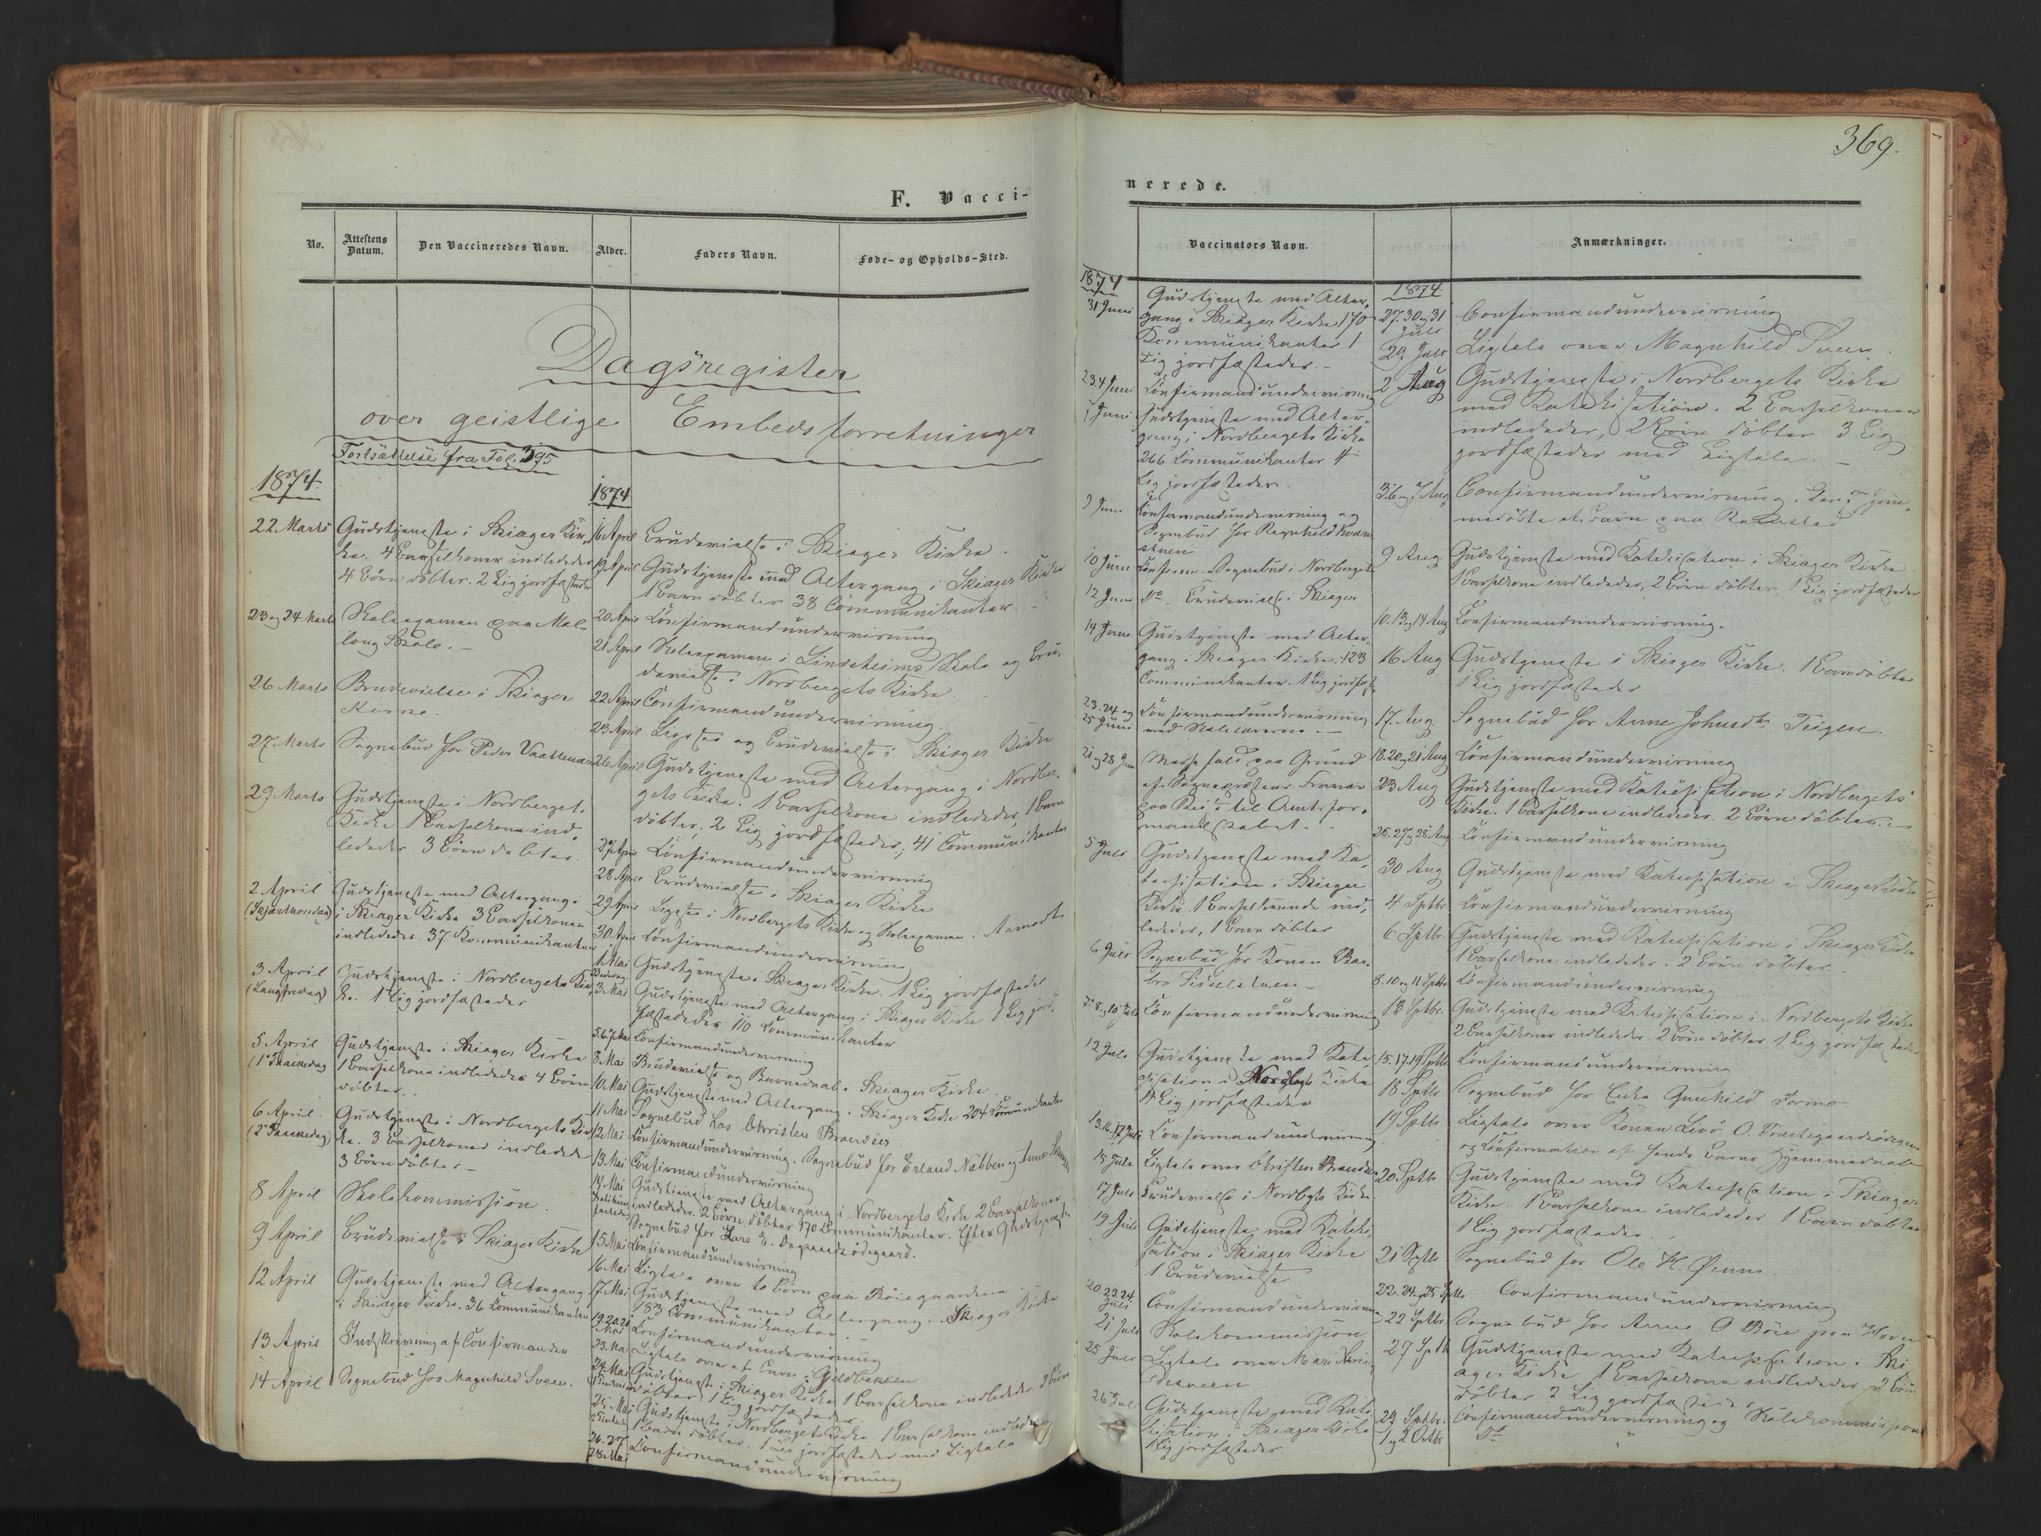 369.
F. Vacci-
nerede.
No.
Attestens Datum.
Den Vaccineredes Navn.
Alder.
Faders Navn.
Føde- og Opholds-Sted.
Vaccinators Navn.
Anmærkninger.
Dagsregister
over geistlige Embedsforretninger
Fortsættelse fra Fol. 395
1874.
22 Marts Gudstjeneste i Skiager Kir-
ke. 4 Barselkoner indlededes
4 Børn døbtes. 2 Lig jordfæstedes
23 og 24 Marts Skoleexamen paa
Skole.
26 Marts Brudevielse i Skiager
Kirke.
27 Marts Sognebud for Peder
29 Marts Gudstjeneste i Nordbergets
Kirke 1 Barselkone ind-
lededes 3 Børn døbtes.
2 April Gudstjeneste med Altergang
(Skjærthorsdag) i Skiager Kirke 3 Barselkoner
indlededes. 37 Kommunikanter
3 April Gudstjeneste i Nordbergets Kir-
(Langfredag) ke. 1 Lig jordfæstedes
5 April Gudstjeneste i Skiager Kirke
(1 Paaskedag) 1 Barselkone indlededes 4 Børn
døbtes.
6 April. Gudstjeneste i Nordbergets Kir-
(2 Paaskedag) ke. 3 Barselkoner indlededes
3 Børn døbtes.
8 April Skolekommission.
9 April Brudevielse i Skiager Kirke
12 April Gudstjeneste med Altergang
i Skiager Kirke. 36 Kommunikanter
13 April Indskrivning af Confirmander
14 April Sognebud hos Magnhild Sveen.
1874
16 April Brudevielse i Skiager Kirke.
19 April Gudstjeneste med Altergang i Skiager Kirke
1 Barn døbtes 38 Communikanter.
20 April Confirmandundervisning
21 April Skoleexamen i Lindsheims Skole og Bru-
devielse i Nordbergets Kirke.
22 April Confirmandundervisning.
23 April og Brudevielse i Skiager Kirke
26 April Gudstjeneste med Altergang i Nordber-
gets Kirke. 1 Barselkone indlededes, 1 Barn
døbtes. 2 Lig jordfæstedes, 41 Communikanter
27 April Confirmandundervisning
28 April Brudevielse i Skiager Kirke
29 April i Nordbergets Kirke og Skoleexamen i
30 April Confirmandundervisning
1 Mai Gudstjeneste i Skiager Kirke. 1 Lig jordfæstedes
3 Mai Gudstjeneste med Altergang i Skiager Kirke 1 Lig jord-
fæstedes 110 Communikanter
5.6.7 Mai Confirmandundervisning
8 Mai Brudevielse og Barnedaab i Skiager Kirke
10 Mai Gudstjeneste med Altergang i Skiager Kirke 204 Communikanter
11 Mai Sognebud hos Christen Brændeis
12 Mai Confirmandundervisning. Sognebud for Erland Nabben og
13 Mai Confirmandundervisning
14 Mai Gudstjeneste med Altergang i Nordbergets Kirke 2 Barselkoner
indlededes. 2 Børn døbtes 170 Communikanter. Efter Gudstjenesten
Sognebud for Lars
15 Mai Confirmandundervisning
16 Mai Ligtale over to Børn paa
17 Mai Gudstjeneste med Altergang i Skiager Kirke
183 Communikanter.
19 20 21 Mai Confirmandundervisning
23 Mai Ligtale over et Barn i
24 Mai Gudstjeneste i Skiager Kirke 1 Barselkone indlededes 2 Børn
døbtes 1 Lig jordfæstedes
25 Mai Gudstjeneste i Nordbergets Kirke. 1 Barselkone indlededes
1 Barn døbtes. 1 Lig jordfæstedes med Ligtale
28 Mai Confirmandundervisning
1874
31 Juni Gudstjeneste med Alter-
gang i Skiager Kirke 170
Kommunikanter 1
Lig jordfæstedes.
2.3.4 Juni Confirmandundervisning
7 Juni Gudstjeneste med Alter-
gang i Nordbergets Kirke
266 Communikanter 4
Lig jordfæstedes.
9 Juni Confirmandundervisning og
Sognebud for Ragnhild
10 Juni Confirm. Sognebud i Nordberget
12 Juni Do. Brudevielse i Skiager
14 Juni Gudstjeneste med Alter-
gang i Skiager Kirke. 123
Communikanter. 1 Lig jordfæst
23.24 og 25 Juni Confirmandundervisning
med
21 og 28 Juni Messefald paa Grund
af Sognepræstens
til Amtsfor-
mandskabet.
5 Juli Gudstjeneste med Ka-
techisation i Skiager
Kirke 1 Barselkone ind-
lededes, 1 Barn døbtes
6 Juli Sognebud for Konen Bar-
bro
7. 8. og 10 Juli Confirmandundervisning
12 Juli Gudstjeneste med Kate-
chisation i Nordbgts Kirke
4 Lig jordfæstedes
13.16.17 Juli Confirmandundervisning
15 Juli Ligtale over Christen Brænde
17 Juli Brudevielse i Nordbgts Kirke
19 Juli Gudstjeneste med Kateki-
sation i Skiager Kirke
1 Brudevielse
20.23.24 Juli Confirmandundervisning
21 Juli Skolekommission
25 Juli Ligtale over Mari
26 Juli Gudstjeneste med Kate-
kisation i Skiager Kirke
1 Lig jordfæstedes.
1874
27. 30 og 31 Juli Confirmandundervisning
29 Juli Ligtale over Magnhild Sveen.
2 Aug Gudstjeneste i Nordbergets Kirke
med Katekisation. 2 Barselkoner
indlededes, 2 Børn døbtes 3 Lig
jordfæstedes med Ligtale.
3. 6 og 7 Aug Confirmandundervisning. Den hjem-
medøbte et Barn paa
9 Aug Gudstjeneste med Katekisation i Skiager Kirke
1 Barselkone indlededes, 2 Børn døbtes, 1 Lig jordfæstedes
10. 13 og 14 Aug Confirmandundervisning.
16 Aug Gudstjeneste i Skiager Kirke. 1 Barn døbtes
1 Lig jordfæstedes
17. Aug. Sognebud for Anne Johnsdt. Teigen.
18. 20 og 21 Aug Confirmandundervisning
23 Aug Gudstjeneste med Katechisation i Nordbergets
Kirke. 1 Barselkone indlededes. 2 Børn døbtes.
25. 27 og 28 Aug Confirmandundervisning
30 Aug Gudstjeneste med Katechisation i Skiager Kirke
4 Sptbr. Confirmandundervisning
6 Sptbr. Gudstjeneste med Katechisation i Skiager Kirke
1 Barselkone indlededes. 2 Børn døbtes.
8. 10 og 11 Sptbr Confirmandundervisning
13 Sptbr. Gudstjeneste med Katechisation i Nordbergets Kirke
2 Barselkoner indlededes. 2 Børn døbtes 1 Lig jordfæstedes
15. 17. 19 Sptbr Confirmandundervisning
18 Sptbr Sognebud for Enke Gunhild Formo
19 Sptbr. Ligtale over Konen Livø O.
og Confirmation af hendes Barns Hjemmedaab
20 Sptbr Gudstjeneste med Katechisation i Skiager
Kirke. 1 Barselkone indlededes 1 Barn døbtes
1 Lig jordfæstedes.
21 Sptbr Sognebud for Ole H. Øinn.
22. 24. og 25 Sptbr. Confirmandundervisning
22 Sptbr. Sognebud for Anne O Bøie paa
27 Sptb Gudstjeneste med Katechisation i Ski-
ager Kirke 1 Barselkone indlededes 2 Børn
døbtes 2 Lig jordfæstedes
29 Sptbr. Confirmandundervisning og Skolekommission
1 og 2 Octbr. Do